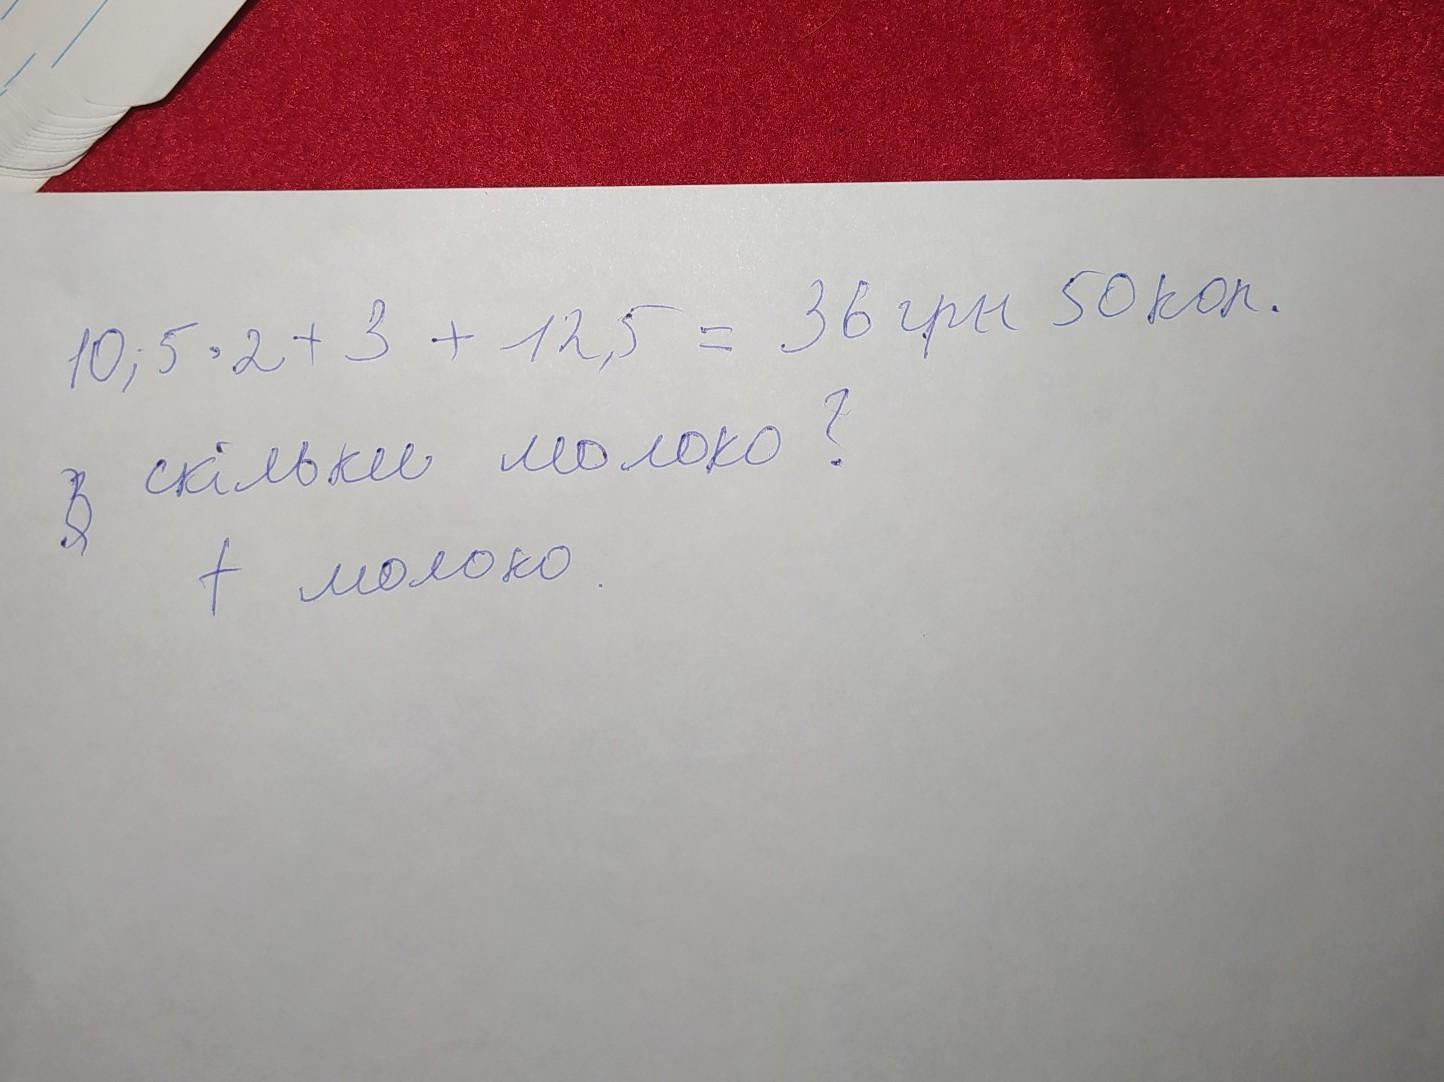 10,5·2+3 + 12,5 = 36 грн 50 коп.
скільки молоко?
+ молоко.